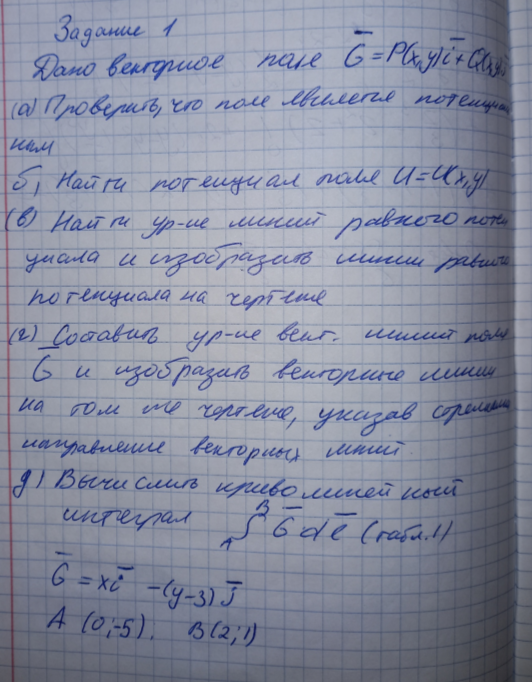 Задание 1
Дано векторное поле G̅ = P(x,y)i̅ + Q(x,y)j̅
(а) Проверить, что поле является потенциаль
ным
б) Найти потенциал поля U = U(x,y)
(в) Найти ур-ие линий равного потен
циала и изобразить линии равного
потенциала на чертеже
(г) Составить ур-ие вект. линий поля
G̅ и изобразить векторные линии
на том же чертеже, указав стрелками
направление векторных линий
д) Вычислить криволинейный
интеграл ∫ₐᴮ G̅ dℓ̅ (табл. 1)
G̅ = xi̅ - (y-3) j̅
A (0;-5). B(2;1)